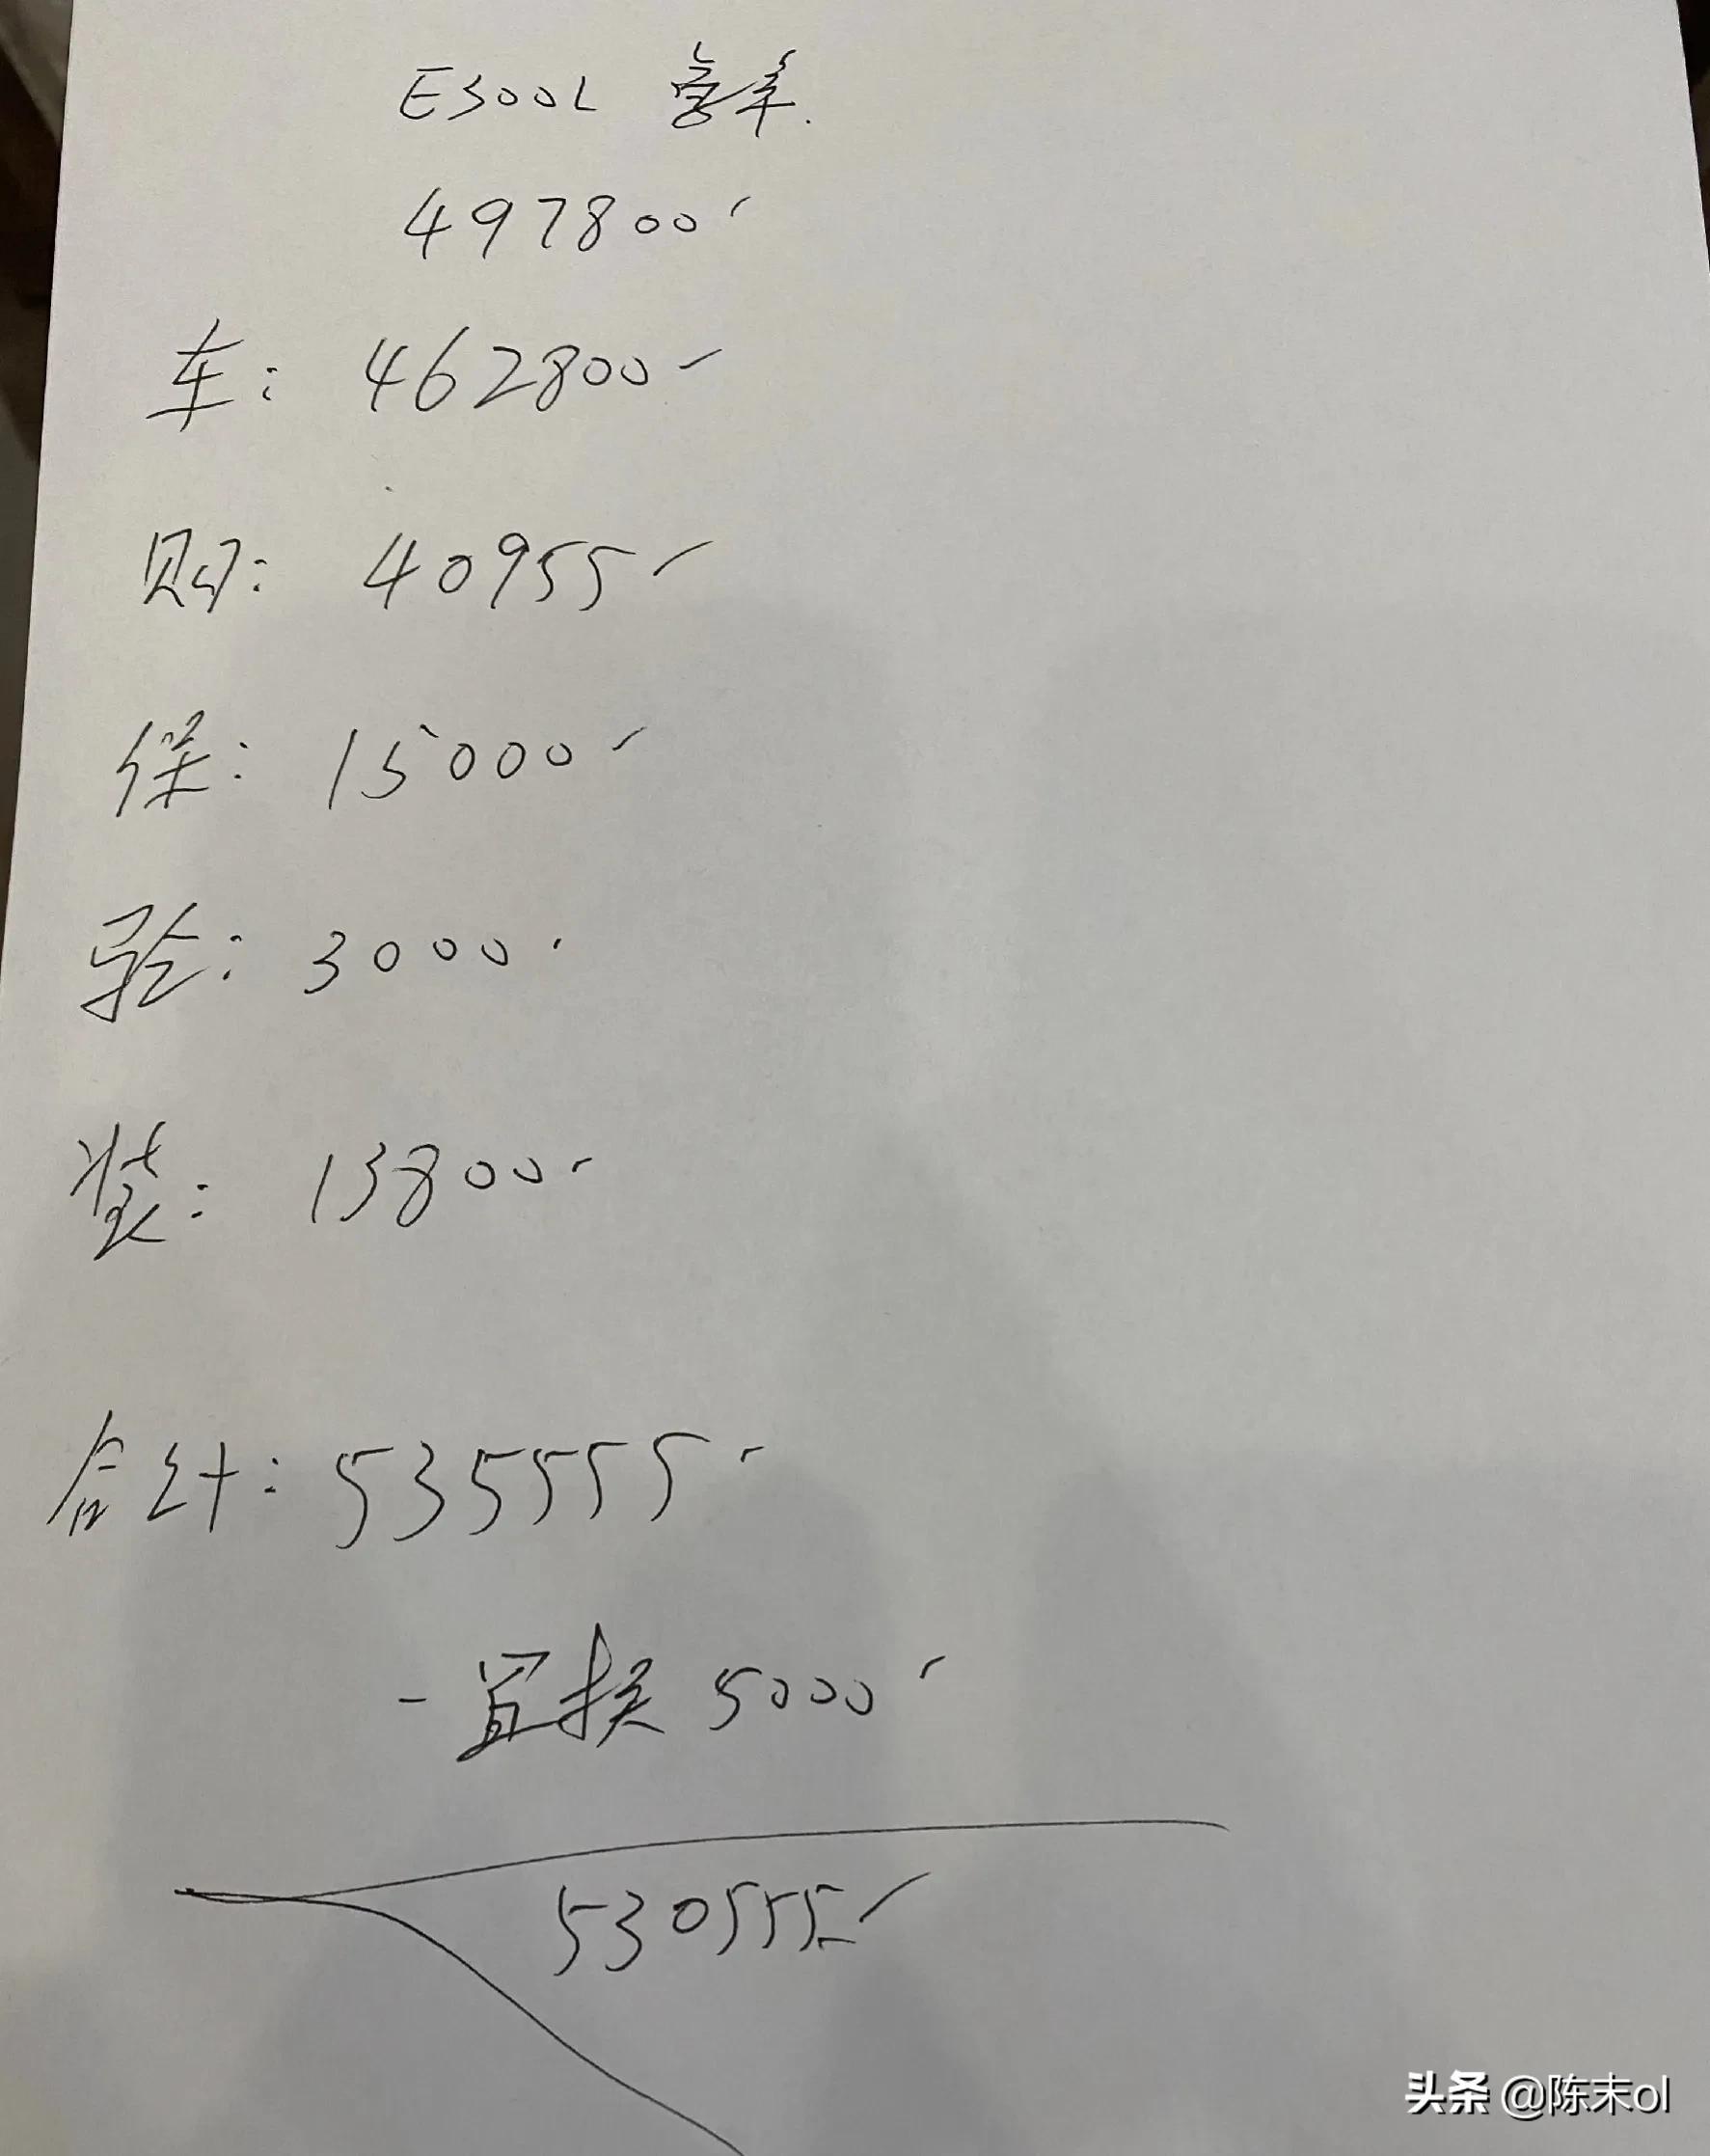 E300L 豪华.
497800
车: 462800
购: 40955
保: 15000
验: 3000
装: 13800
合计: 535555
- 置换 5000
530555
头条 @陈末ol